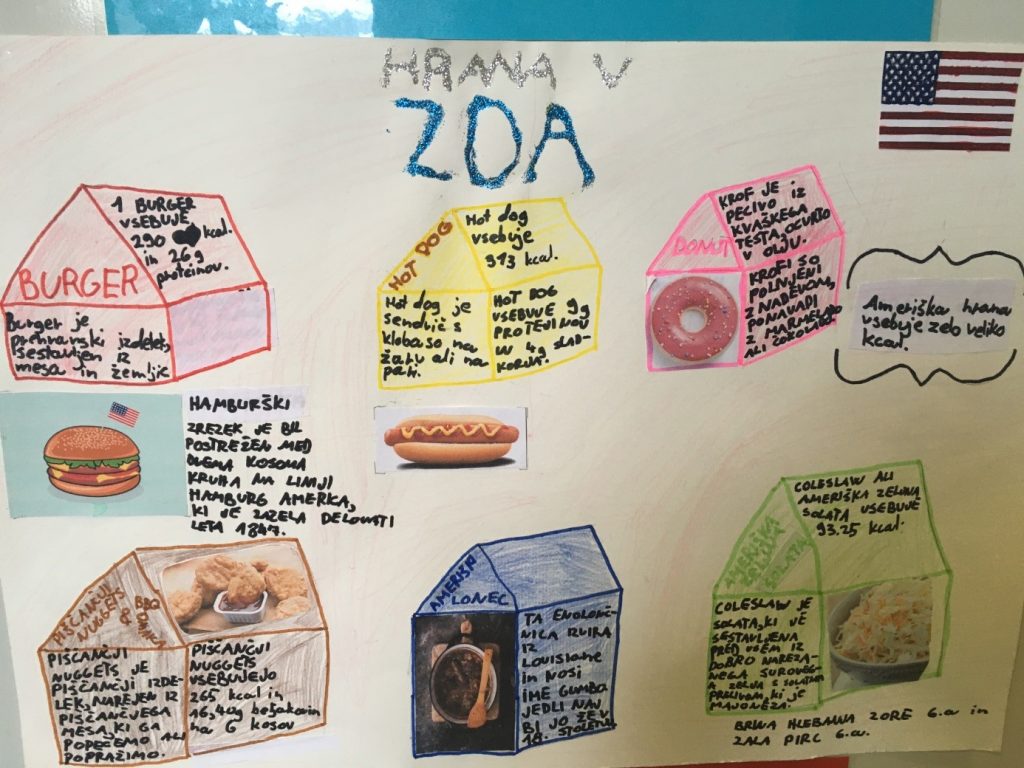 HRANA V
ZDA
BURGER
1 BURGER
VSEBUJE
290 kcal.
in 26g
proteinov.
Burger je
prehranski izdelek,
sestavljen iz
mesa in žemljic
HOT DOG
Hot dog
vsebuje
313 kcal.
Hot dog je
sendvič s
klobaso na
žaru ali na
pari.
HOT DOG
VSEBUJE 9g
PROTEINOV
IN 4g SLAD-
KORJA.
DONUT
KROF JE
PECIVO IZ
KVAŠKEGA
TESTA, OCVRTO
V OLJU.
KROFI SO
POLNJENI
Z NADEVOM,
PONAVADI
Z MARMELADO
ALI ČOKOLADO
Ameriška hrana
vsebuje zelo veliko
kcal.
HAMBURŠKI
ZREZEK JE BIL
POSTREŽEN MED
DVEMA KOSOMA
KRUHA NA LINIJI
HAMBURG AMERKA,
KI JE ZAČELA DELOVATI
LETA 1847.
PIŠČANČJI
NUGGETS
&
BBQ
POMAKA
PIŠČANČJI
NUGGETS JE
PIŠČANČJI IZDE-
LEK, NAREJEN IZ
PIŠČANČJEGA
MESA, KI GA
POPEČEMO ALI
POPRAŽIMO.
PIŠČANČJI
NUGGETS
VSEBUJEJO
265 kcal in
16,40g beljakovin
na 6 kosov
AMERIŠKI
LONEC
TA ENOLONČ-
NICA IZVIRA
IZ
LOUISIANE
IN NOSI
IME GUMBO
JEDLI NAJ
BI JO ŽE V
18. STOLETJU.
AMERIŠKA
ZELJNA
SOLATA
COLESLAW ALI
AMERIŠKA ZELJNA
SOLATA VSEBUJE
93.25 kcal.
COLESLAW JE
SOLATA, KI JE
SESTAVLJENA
PREDVSEM IZ
DOBRO NAREZA-
NEGA SUROVEG
ZELJA S SOLATNIM
PRELIVOM, KI JE
MAJONEZA.
BRINA HLEBANJA ZORE 6.a in
ZALA PIRC 6.a.